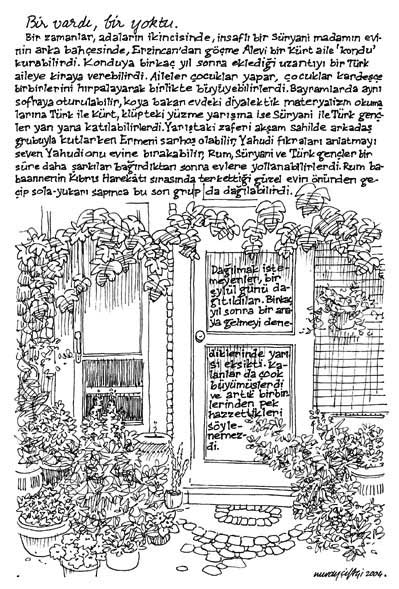 Bir vardı, bir yoktu.
Bir zamanlar, adaların ikincisinde, insaflı bir Süryani madamın evi-
nin arka bahçesinde, Erzincan'dan göçme Alevi bir Kürt aile 'kondu'
kurabilirdi. Konduya birkaç yıl sonra eklediği uzantıyı bir Türk
aileye kiraya verebilirdi. Aileler çocuklar yapar, çocuklar kardeşçe
birbirlerini hırpalayarak birlikte büyüyebilirlerdi. Bayramlarda aynı
sofraya oturulabilir, koya bakan evdeki diyalektik materyalizm okuma
larına Türk ile Kürt, klüpteki yüzme yarışına ise Süryani ile Türk genç-
ler yan yana katılabilirlerdi. Yarıştaki zaferi akşam sahilde arkadaş
grubuyla kutlarken Ermeni sarhoş olabilir, Yahudi fıkraları anlatmayı
seven Yahudi onu evine bırakabilir, Rum, Süryani ve Türk gençler bir
süre daha şarkılar bağırdıktan sonra evlere yollanabilirlerdi. Rum ba-
baannenin Kıbrıs Harekatı sırasında terkettiği güzel evin önünden ge-
çip sola-yukarı sapınca bu son grup da dağılabilirdi.
Dağılmak iste-
meyenler, bir
eylül günü da-
ğıtıldılar. Birkaç
yıl sonra bir ara-
ya gelmeyi dene-
diklerinde yarı
sı eksikti. Ka-
lanlar da çook
büyümüşlerdi
ve artık birbir-
lerinden pek
hazzettikleri
söyle-
nemez-
di.
nuray çiftçi 2004.